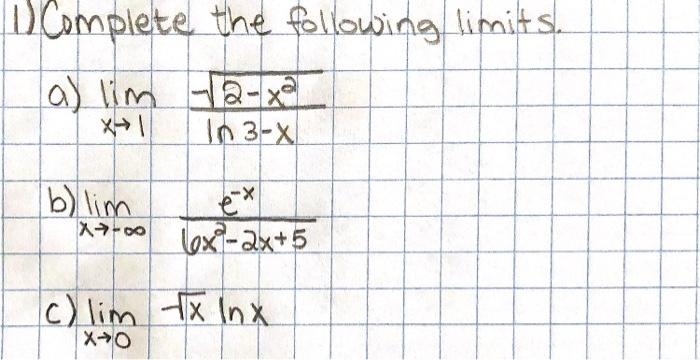 1) Complete the following limits.
a) lim √2-x²
x→1 ln 3-x
b) lim e⁻ˣ
x→-∞ 6x²-2x+5
c) lim √x ln x
x→0